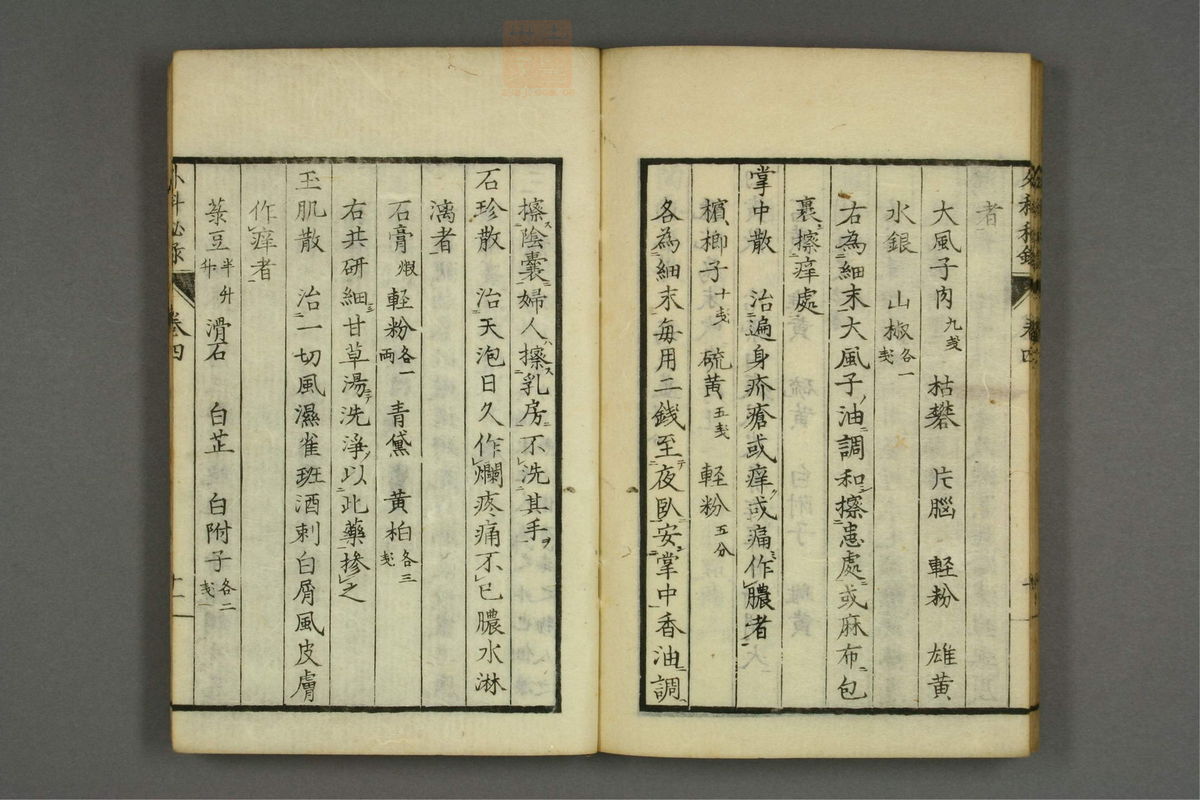 者
大風子肉九戔 枯礬 片腦 輕粉 雄黄
水銀 山椒各一戔
右為細末大風子ノ油ニ調和シ擦患處ニ或麻布ニ包
裹シ擦痒處
掌中散 治遍身疥瘡或痒或痛作膿者
檳榔子十戔 硫黄五戔 輕粉五分
各為細末毎用二錢至夜臥安掌中香油調
擦陰嚢婦人擦乳房不洗其手
石珍散 治天泡日久作爛疼痛不已膿水淋
漓者
石膏煆 輕粉各一両 青黛 黄柏各三戔
右共研細甘草湯洗淨以此藥摻之
玉肌散 治一切風濕雀斑酒刺白屑風皮膚
作痒者
菉豆半升 滑石 白芷 白附子各二戔
卷四